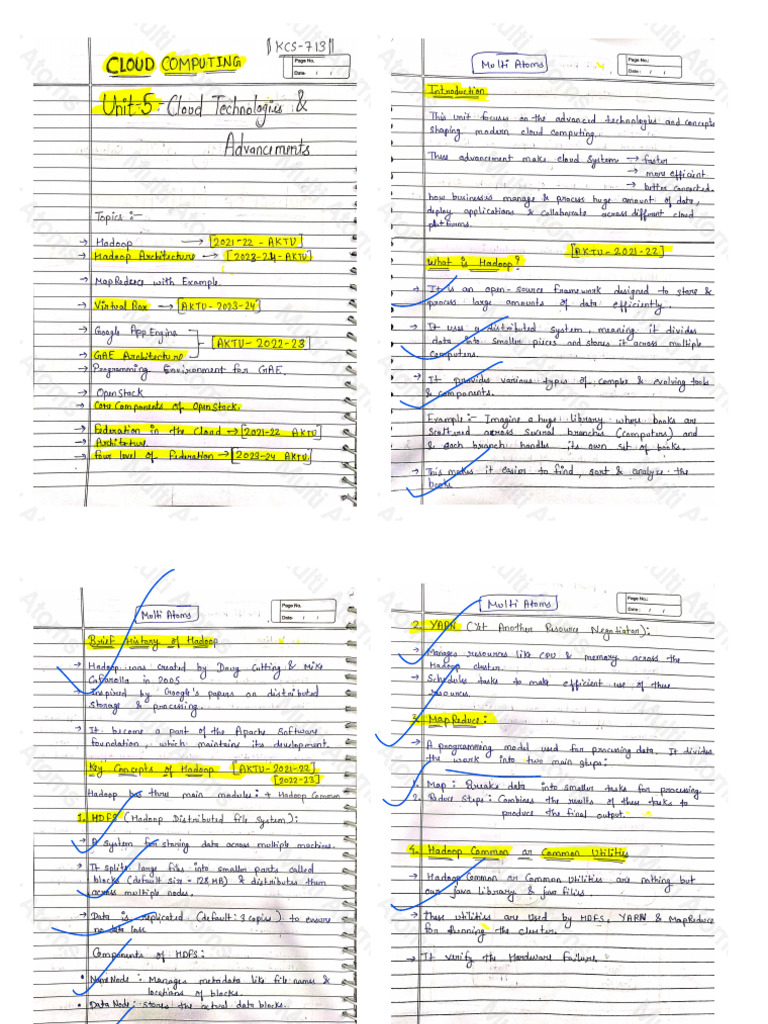 KCS-713
CLOUD COMPUTING
Page No.:
Date: / /
Unit-5 - Cloud Technologies &
Advancements
Topics :-
→ Hadoop → [2021-22 - AKTU]
→ Hadoop Architecture → [2023-24 - AKTU]
→ MapReduce with Example.
→ Virtual Box → [AKTU - 2023-24]
→ Google App Engine
[AKTU - 2022-23]
→ GAE Architecture
→ Programming Environment for GAE.
→ OpenStack
→ Core Components of OpenStack.
→ Federation in the Cloud → [2021-22 AKTU]
→ Architecture.
→ Four level of Federation → [2023-24 AKTU]
Multi Atoms
Page No.:
Date: / /
Introduction
This unit focuses on the advanced technologies and concepts
shaping modern cloud computing.
These advancement make cloud system → faster
→ more efficient
→ better connected.
how businesses manage & process huge amount of data,
deploy applications & collaborate across different cloud
platforms.
[AKTU - 2021-22]
What is Hadoop?
→ It is an open-source framework designed to store &
process large amounts of data efficiently.
→ It uses a distributed system, meaning it divides
data into smaller pieces and stores it across multiple
computers.
→ It provides various types of complex & evolving tools
& components.
Example :- Imagine a huge library where books are
scattered across several branches (computers) and
& each branch handles its own set of books.
→ This makes it easier to find, sort & analyze the
books
Multi Atoms
Page No.:
Date: / /
Brief History of Hadoop
→ Hadoop was created by Doug Cutting & Mike
Cafarella in 2005
→ Inspired by Google's papers on distributed
storage & processing.
→ It became a part of the Apache Software
foundation, which maintains its development.
Key Concepts of Hadoop [AKTU - 2021-22]
[2022-23]
Hadoop has three main modules: + Hadoop Common
1. HDFS (Hadoop Distributed file System):
→ A system for storing data across multiple machines.
→ It splits large files into smaller parts called
blocks (default size = 128 MB) & distributes them
across multiple nodes.
→ Data is replicated (default: 3 copies) to ensure
no data loss
Components of HDFS:
• NameNode : Manages metadata like file names &
locations of blocks.
• Data Node: stores the actual data blocks.
Multi Atoms
Page No.:
Date: / /
2. YARN (Yet Another Resource Negotiator):
→ Manages resources like CPU & memory across the
Hadoop cluster.
→ Schedules tasks to make efficient use of these
resources.
3. MapReduce:
→ A programming model used for processing data. It divides
the work into two main steps:
1. Map: Breaks data into smaller tasks for processing
2. Reduce Steps: Combines the results of these tasks to
produce the final output.
4. Hadoop Common or Common Utilities
→ Hadoop Common or Common Utilities are nothing but
our java library & java files
→ These utilities are used by HDFS, YARN & MapReduce
for running the cluster.
→ It verify the Hardware failure.